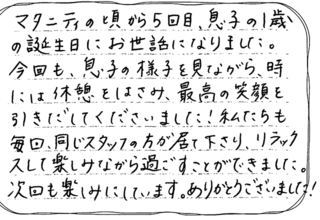 マタニティの頃から5回目、息子の1歳
の誕生日にお世話になりました。
今回も、息子の様子を見ながら、時
には休憩をはさみ、最高の笑顔を
引きだしてくださいました!私たちも
毎回、同じスタッフの方が居て下さり、リラック
スして楽しみながら過ごすことができました。
次回も楽しみにしています。ありがとうございました!